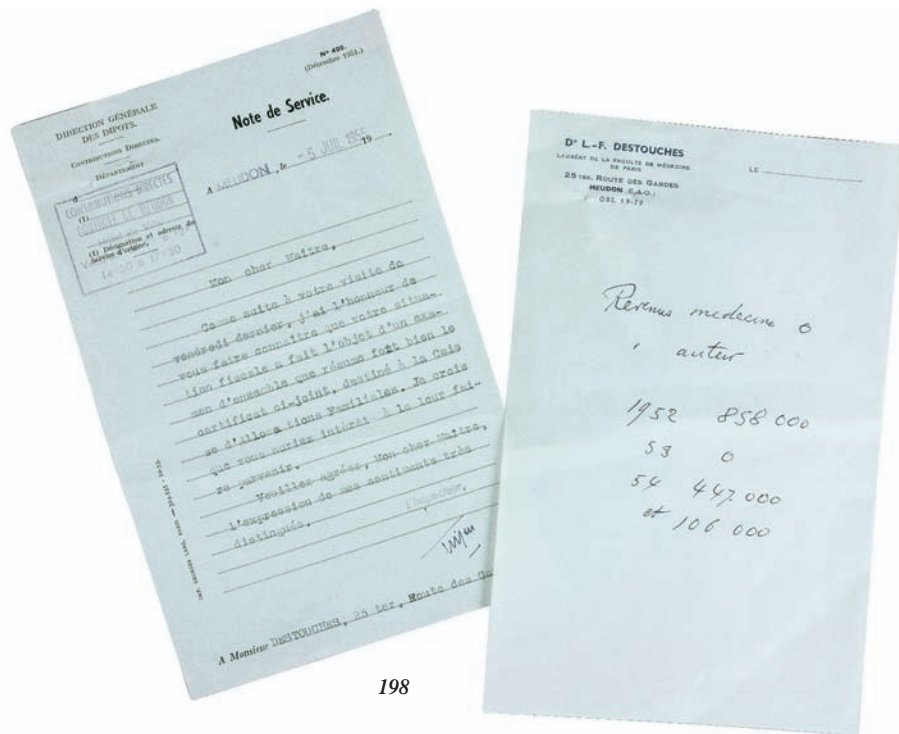 Nº 400.
(Décembre 1951.)
DIRECTION GÉNÉRALE
DES IMPOTS.
CONTRIBUTIONS DIRECTES.
DÉPARTEMENT
d
Note de Service.
A MEUDON, le - 5 JUIL 1955 19
CONTRIBUTIONS DIRECTES
CONTROLE DE MEUDON
(1)
(1) Désignation et adresse du
Service d'origine.
14-30 à 17-30
Mon cher Maître,
Comme suite à votre visite de
vendredi dernier, j'ai l'honneur de
vous faire connaître que votre situa-
tion fiscale a fait l'objet d'un exa-
men d'ensemble que résume fort bien le
certificat ci-joint, destiné à la Cais
se d'Alloca tions Familiales. Je crois
que vous auriez intérêt à le leur fai-
re parvenir.
Veuillez agréer, Mon cher Maître,
l'expression de mes sentiments très
distingués.
l'Inspecteur,
A Monsieur DESTOUCHES, 25 ter, Route des Ga
Dr L.-F. DESTOUCHES
LAURÉAT DE LA FACULTÉ DE MÉDECINE
DE PARIS
25 TER, ROUTE DES GARDES
MEUDON (S.-&-O.)
OBS. 19-79
LE
Revenus medecine 0
" auteur
1952 858 000
53 0
54 447.000
et 106 000
198